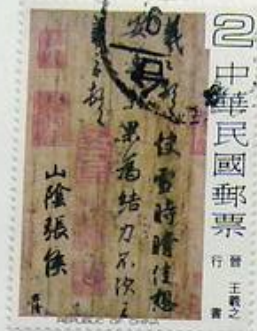 2
中華民國郵票
晉 王羲之
行書
快雪時晴佳想
果為結力不次王
羲之頓首
山陰張侯
REPUBLIC OF CHINA